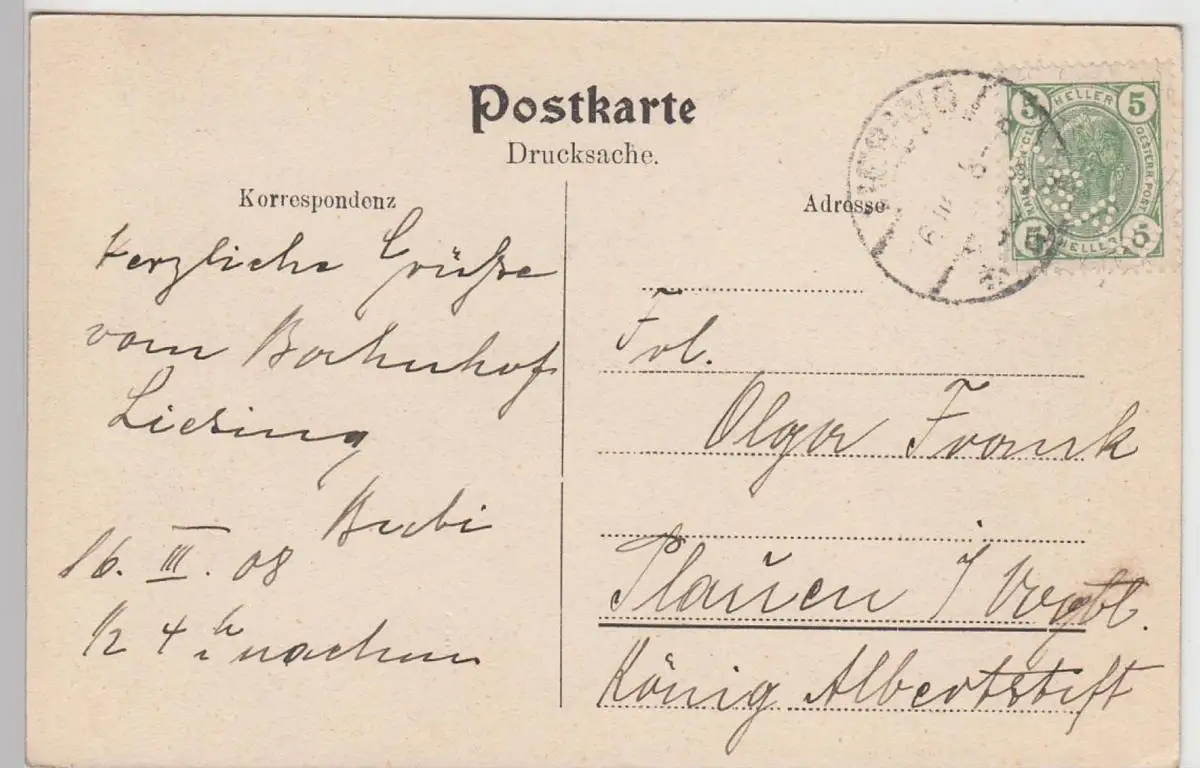 Postkarte
Drucksache.
Korrespondenz
Herzliche Grüße
vom Bahnhof
Liesing
Bubi
16. III. 08
1/2 4 h nachm
Adresse
Frl.
Olga Frank
Plauen i/ Vogtl.
König Albertstift
5 HELLER 5
5 HELLER 5